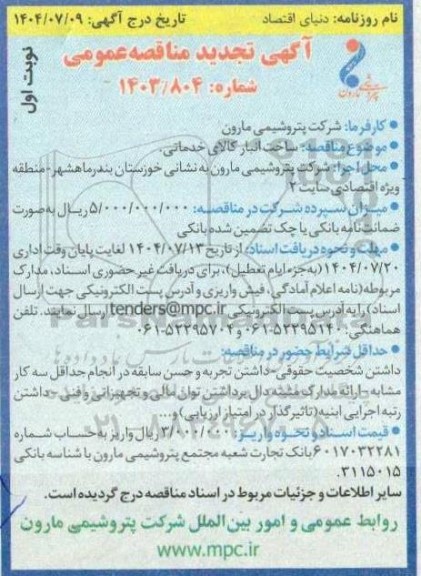 نام روزنامه: دنیای اقتصاد تاریخ درج آگهی: ۱۴۰۴/۰۷/۰۹
آگهی تجدید مناقصه عمومی
شماره: ۱۴۰۳/۸۰۴
نوبت اول
پتروشیمی مارون
● کارفرما: شرکت پتروشیمی مارون
● موضوع مناقصه: ساخت انبار کالای خدماتی.
● محل اجرا: شرکت پتروشیمی مارون به نشانی خوزستان بندرماهشهر-منطقه
ویژه اقتصادی سایت ۲
● میزان سپرده شرکت در مناقصه: ۵/۰۰۰/۰۰۰/۰۰۰ ریال به صورت
ضمانت نامه بانکی یا چک تضمین شده بانکی
● مهلت و نحوه دریافت اسناد: از تاریخ ۱۴۰۴/۰۷/۱۳ لغایت پایان وقت اداری
۱۴۰۴/۰۷/۲۰ (به جزء ایام تعطیل)، برای دریافت غیر حضوری اسناد، مدارک
مربوطه (نامه اعلام آمادگی، فیش واریزی و آدرس پست الکترونیکی جهت ارسال
اسناد) را به آدرس پست الکترونیکی tenders@mpc.ir ارسال نمایند. تلفن
هماهنگی: ۵۲۳۹۵۱۴۰-۰۶۱ و ۵۲۲۹۵۷۰۴-۰۶۱
● حداقل شرایط حضور در مناقصه:
داشتن شخصیت حقوقی-داشتن تجربه و حسن سابقه در انجام حداقل سه کار
مشابه-ارائه مدارک مثبته دال بر داشتن توان مالی و تجهیزاتی وفنی-داشتن
رتبه اجرایی ابنیه (تاثیرگذار در امتیاز ارزیابی) و...
● قیمت اسناد و نحوه واریز: ۳/۰۰۰/۰۰۰ ریال واریز به حساب شماره
۶۰۱۷۰۳۲۲۸۱ بانک تجارت شعبه مجتمع پتروشیمی مارون با شناسه بانکی
۳۱۱۵۰۱۵.
سایر اطلاعات و جزئیات مربوط در اسناد مناقصه درج گردیده است.
روابط عمومی و امور بین الملل شرکت پتروشیمی مارون
www.mpc.ir